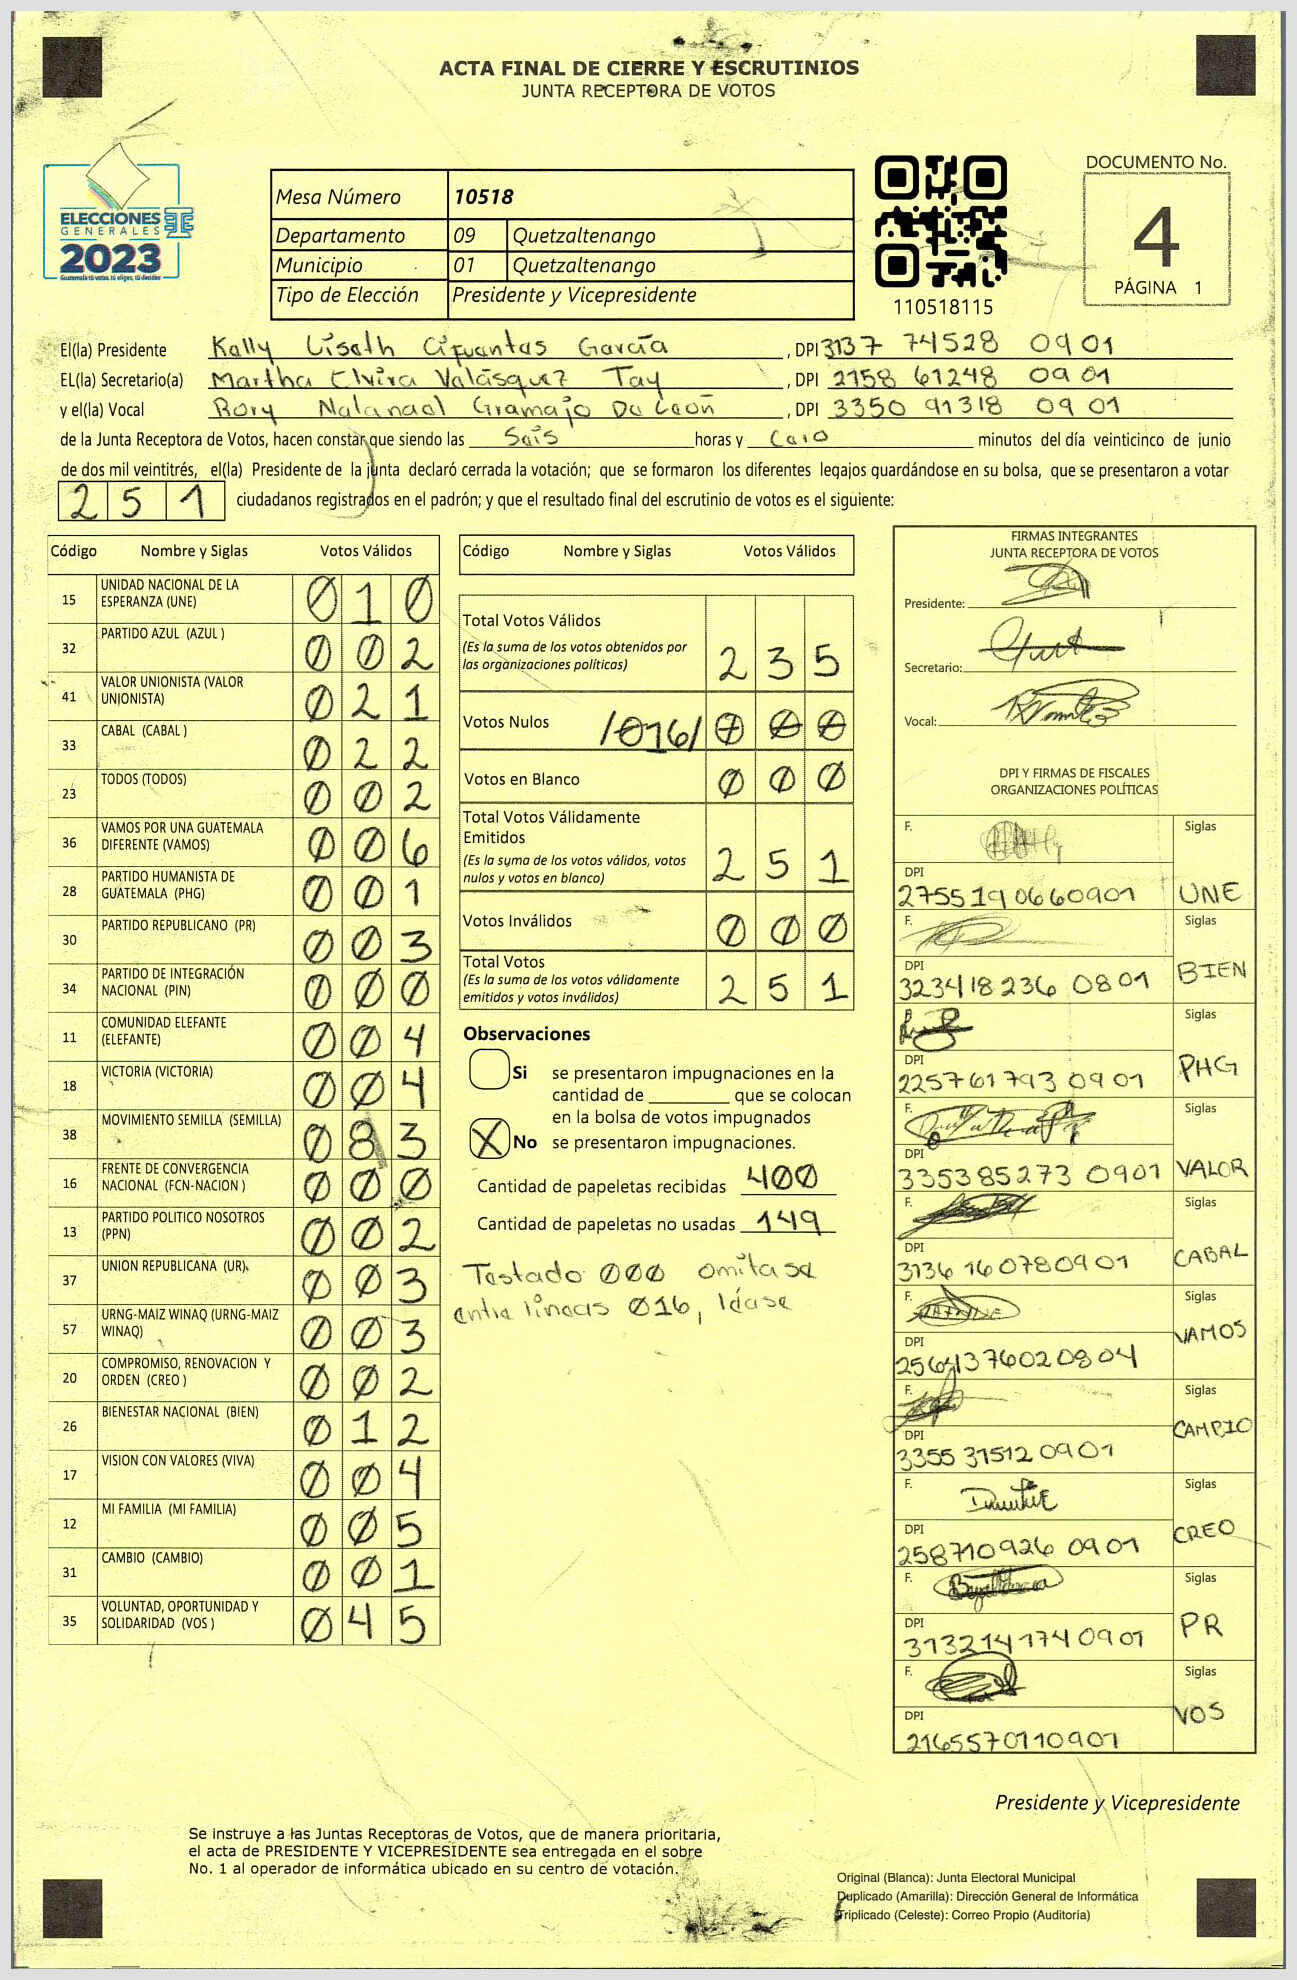 ACTA FINAL DE CIERRE Y ESCRUTINIOS
JUNTA RECEPTORA DE VOTOS
ELECCIONES
GENERALES
2023
Guatemala tú votas, tú eliges, tú decides
Mesa Número 10518
Departamento 09 Quetzaltenango
Municipio 01 Quetzaltenango
Tipo de Elección Presidente y Vicepresidente
110518115
DOCUMENTO No.
4
PÁGINA 1
El(la) Presidente Kally Liseth Cifuentes García , DPI 3137 74528 0901
EL(la) Secretario(a) Martha Elvira Valásquez Tay , DPI 2758 61248 0901
y el(la) Vocal Rory Natanael Gramajo De León , DPI 3350 91318 0901
de la Junta Receptora de Votos, hacen constar que siendo las Seis horas y Cero minutos del día veinticinco de junio
de dos mil veintitrés, el(la) Presidente de la junta declaró cerrada la votación; que se formaron los diferentes legajos guardándose en su bolsa, que se presentaron a votar
251 ciudadanos registrados en el padrón; y que el resultado final del escrutinio de votos es el siguiente:
Código Nombre y Siglas Votos Válidos
15 UNIDAD NACIONAL DE LA ESPERANZA (UNE) 010
32 PARTIDO AZUL (AZUL ) 002
41 VALOR UNIONISTA (VALOR UNIONISTA) 021
33 CABAL (CABAL ) 022
23 TODOS (TODOS) 002
36 VAMOS POR UNA GUATEMALA DIFERENTE (VAMOS) 006
28 PARTIDO HUMANISTA DE GUATEMALA (PHG) 001
30 PARTIDO REPUBLICANO (PR) 003
34 PARTIDO DE INTEGRACIÓN NACIONAL (PIN) 000
11 COMUNIDAD ELEFANTE (ELEFANTE) 004
18 VICTORIA (VICTORIA) 004
38 MOVIMIENTO SEMILLA (SEMILLA) 083
16 FRENTE DE CONVERGENCIA NACIONAL (FCN-NACION ) 000
13 PARTIDO POLITICO NOSOTROS (PPN) 002
37 UNION REPUBLICANA (UR) 003
57 URNG-MAIZ WINAQ (URNG-MAIZ WINAQ) 003
20 COMPROMISO, RENOVACION Y ORDEN (CREO ) 002
26 BIENESTAR NACIONAL (BIEN) 012
17 VISION CON VALORES (VIVA) 004
12 MI FAMILIA (MI FAMILIA) 005
31 CAMBIO (CAMBIO) 001
35 VOLUNTAD, OPORTUNIDAD Y SOLIDARIDAD (VOS ) 045
Código Nombre y Siglas Votos Válidos
Total Votos Válidos
(Es la suma de los votos obtenidos por
las organizaciones políticas) 235
Votos Nulos /016/ 000
Votos en Blanco 000
Total Votos Válidamente
Emitidos
(Es la suma de los votos válidos, votos
nulos y votos en blanco) 251
Votos Inválidos 000
Total Votos
(Es la suma de los votos válidamente
emitidos y votos inválidos) 251
Observaciones
Si se presentaron impugnaciones en la
cantidad de ________ que se colocan
en la bolsa de votos impugnados
X No se presentaron impugnaciones.
Cantidad de papeletas recibidas 400
Cantidad de papeletas no usadas 149
Testado 000 omitase
entre lineas 016, léase
FIRMAS INTEGRANTES
JUNTA RECEPTORA DE VOTOS
Presidente:
Secretario:
Vocal:
DPI Y FIRMAS DE FISCALES
ORGANIZACIONES POLÍTICAS
F. Siglas
DPI
2755190660901 UNE
F. Siglas
DPI
323418236 0801 BIEN
F. Siglas
DPI
225761793 0901 PHG
F. Siglas
DPI
335385273 0901 VALOR
F. Siglas
DPI
3136160780901 CABAL
F. Siglas
DPI
2564137602 0804 VAMOS
F. Siglas
DPI
3355 31512 0901 CAMBIO
F. Siglas
DPI
258710926 0901 CREO
F. Siglas
DPI
3132141740901 PR
F. Siglas
DPI
2165570110901 VOS
Presidente y Vicepresidente
Se instruye a las Juntas Receptoras de Votos, que de manera prioritaria,
el acta de PRESIDENTE Y VICEPRESIDENTE sea entregada en el sobre
No. 1 al operador de informática ubicado en su centro de votación.
Original (Blanca): Junta Electoral Municipal
Duplicado (Amarilla): Dirección General de Informática
Triplicado (Celeste): Correo Propio (Auditoría)